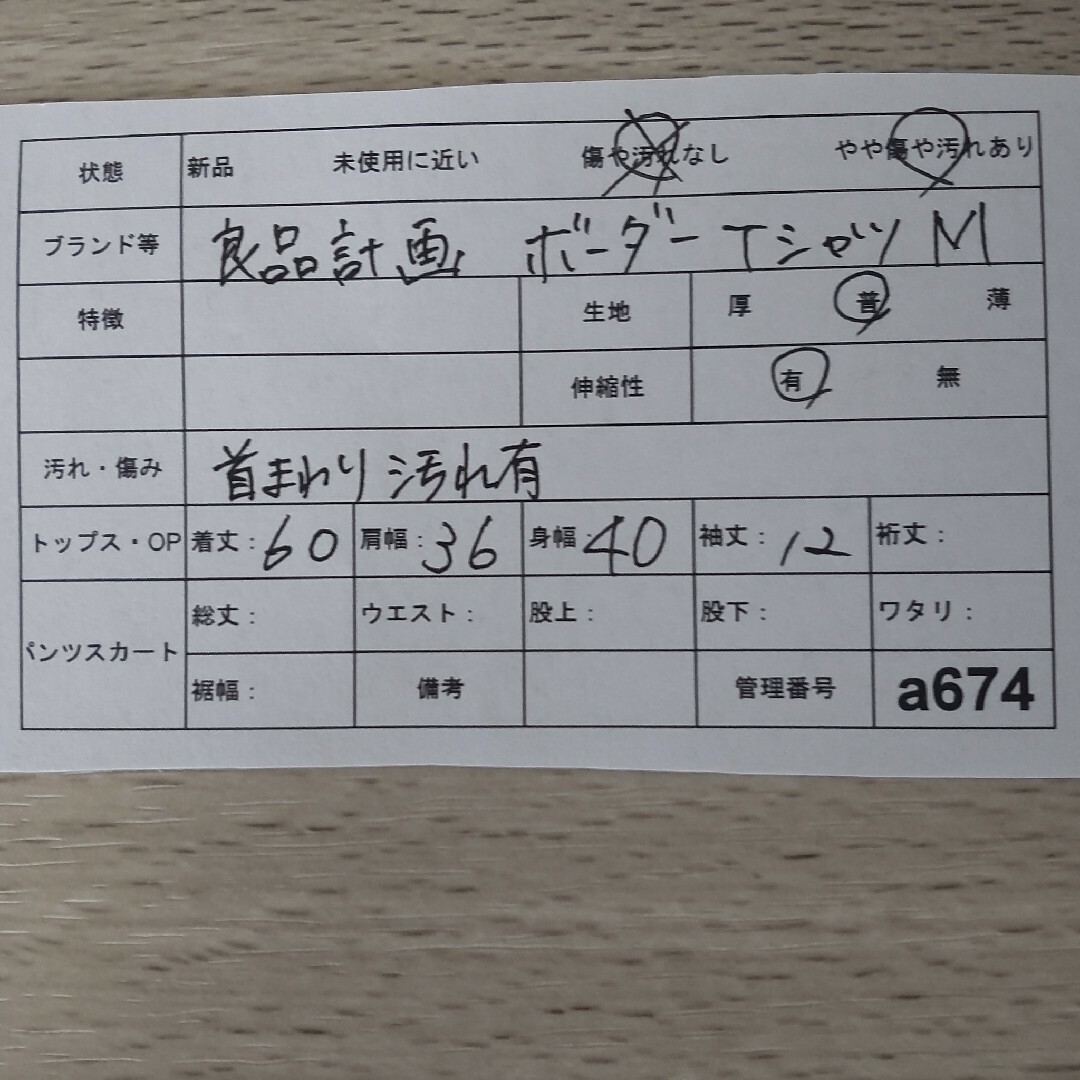 状態 新品 未使用に近い 傷や汚れなし やや傷や汚れあり
ブランド等 良品計画 ボーダーTシャツ M
特徴 生地 厚 普 薄
伸縮性 有 無
汚れ・傷み 首まわり汚れ有
トップス・OP 着丈：60 肩幅：36 身幅：40 袖丈：12 裄丈：
パンツスカート 総丈： ウエスト： 股上： 股下： ワタリ：
裾幅： 備考 管理番号 a674